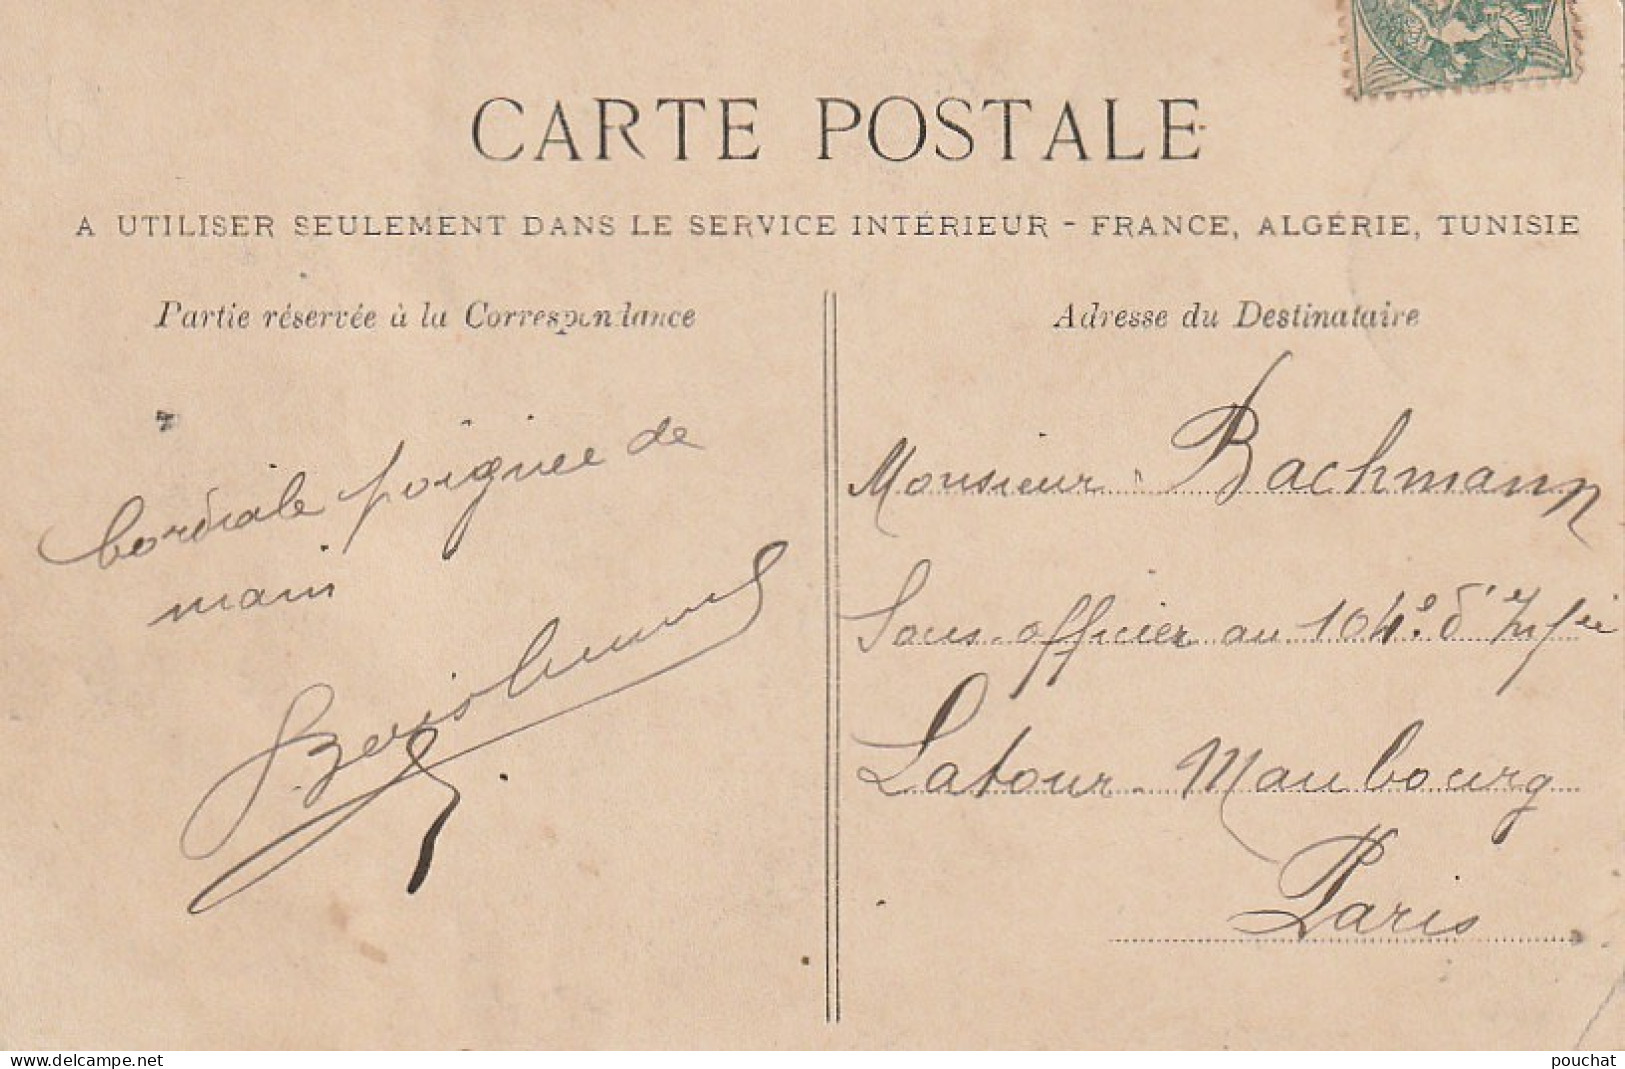 CARTE POSTALE
A UTILISER SEULEMENT DANS LE SERVICE INTÉRIEUR - FRANCE, ALGÉRIE, TUNISIE
Partie réservée à la Correspondance
Cordiale poignee de
main
Adresse du Destinataire
Monsieur Bachmann
Sous-officier au 104e d'Infie
Latour-Maubourg
Paris
www.delcampe.net
pouchat